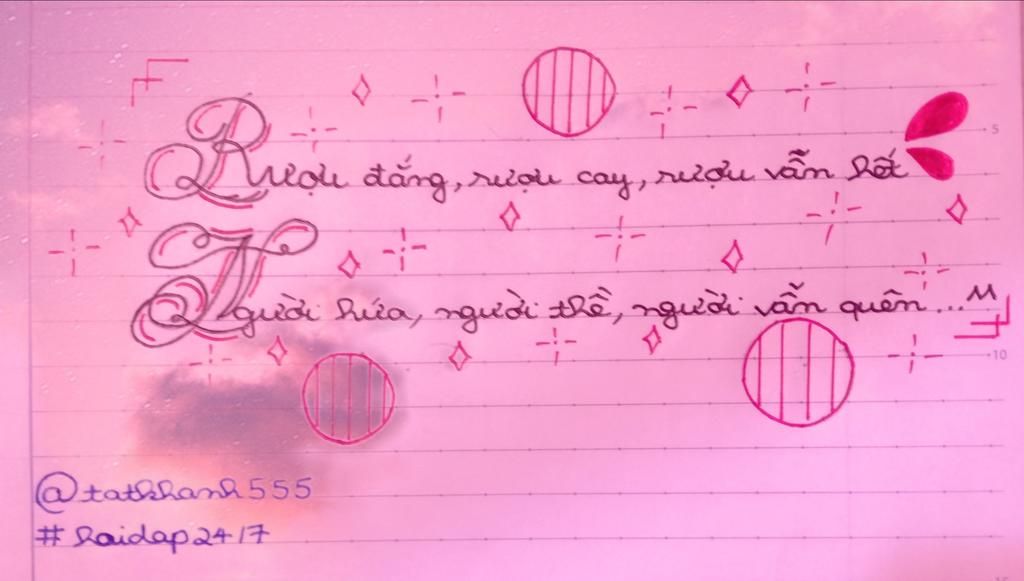 Rượu đắng, rượu cay, rượu vẫn hết
Người hứa, người thề, người vẫn quên... M
5
10
@tatkhanh555
#hoidap247